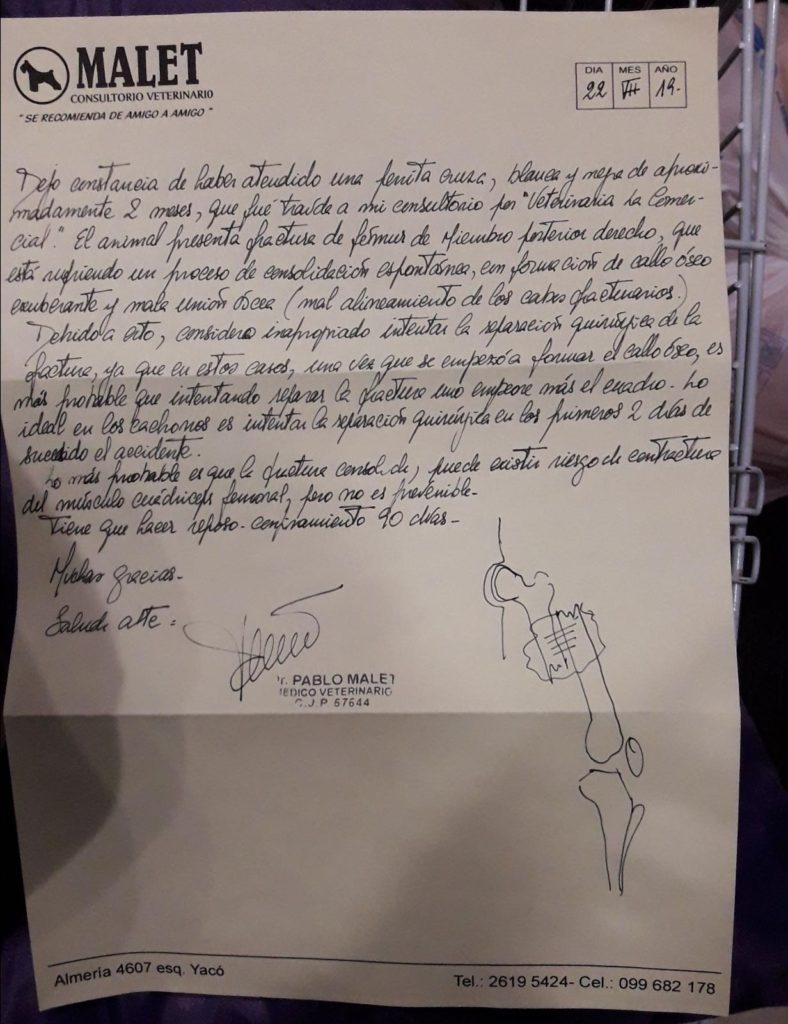 MALET
CONSULTORIO VETERINARIO
"SE RECOMIENDA DE AMIGO A AMIGO"
DIA MES AÑO
22 VII 19.
Dejo constancia de haber atendido una perrita cruza, blanca y negra de aproxi-
madamente 2 meses, que fué traída a mi consultorio por "Veterinaria La Comer-
cial." El animal presenta fractura de fémur de Miembro posterior derecho, que
está sufriendo un proceso de consolidación espontánea, con formación de callo óseo
exuberante y mala unión ósea (mal alineamiento de los cabos fracturarios.)
Debido a esto, considero inapropiado intentar la reparación quirúrgica de la
fractura, ya que en estos casos, una vez que se empezó a formar el callo óseo, es
más probable que intentando reparar la fractura uno empeore más el cuadro. Lo
ideal en los cachorros es intentar la reparación quirúrgica en los primeros 2 días de
sucedido el accidente.
Lo más probable es que la fractura consolide, puede existir riesgo de contractura
del músculo cuádriceps femoral, pero no es prevenible.
Tiene que hacer reposo - confinamiento 90 días -
Muchas gracias -
Saluda atte:
Dr. PABLO MALET
MEDICO VETERINARIO
C.J.P. 67644
Almería 4607 esq. Yacó
Tel.: 2619 5424- Cel.: 099 682 178